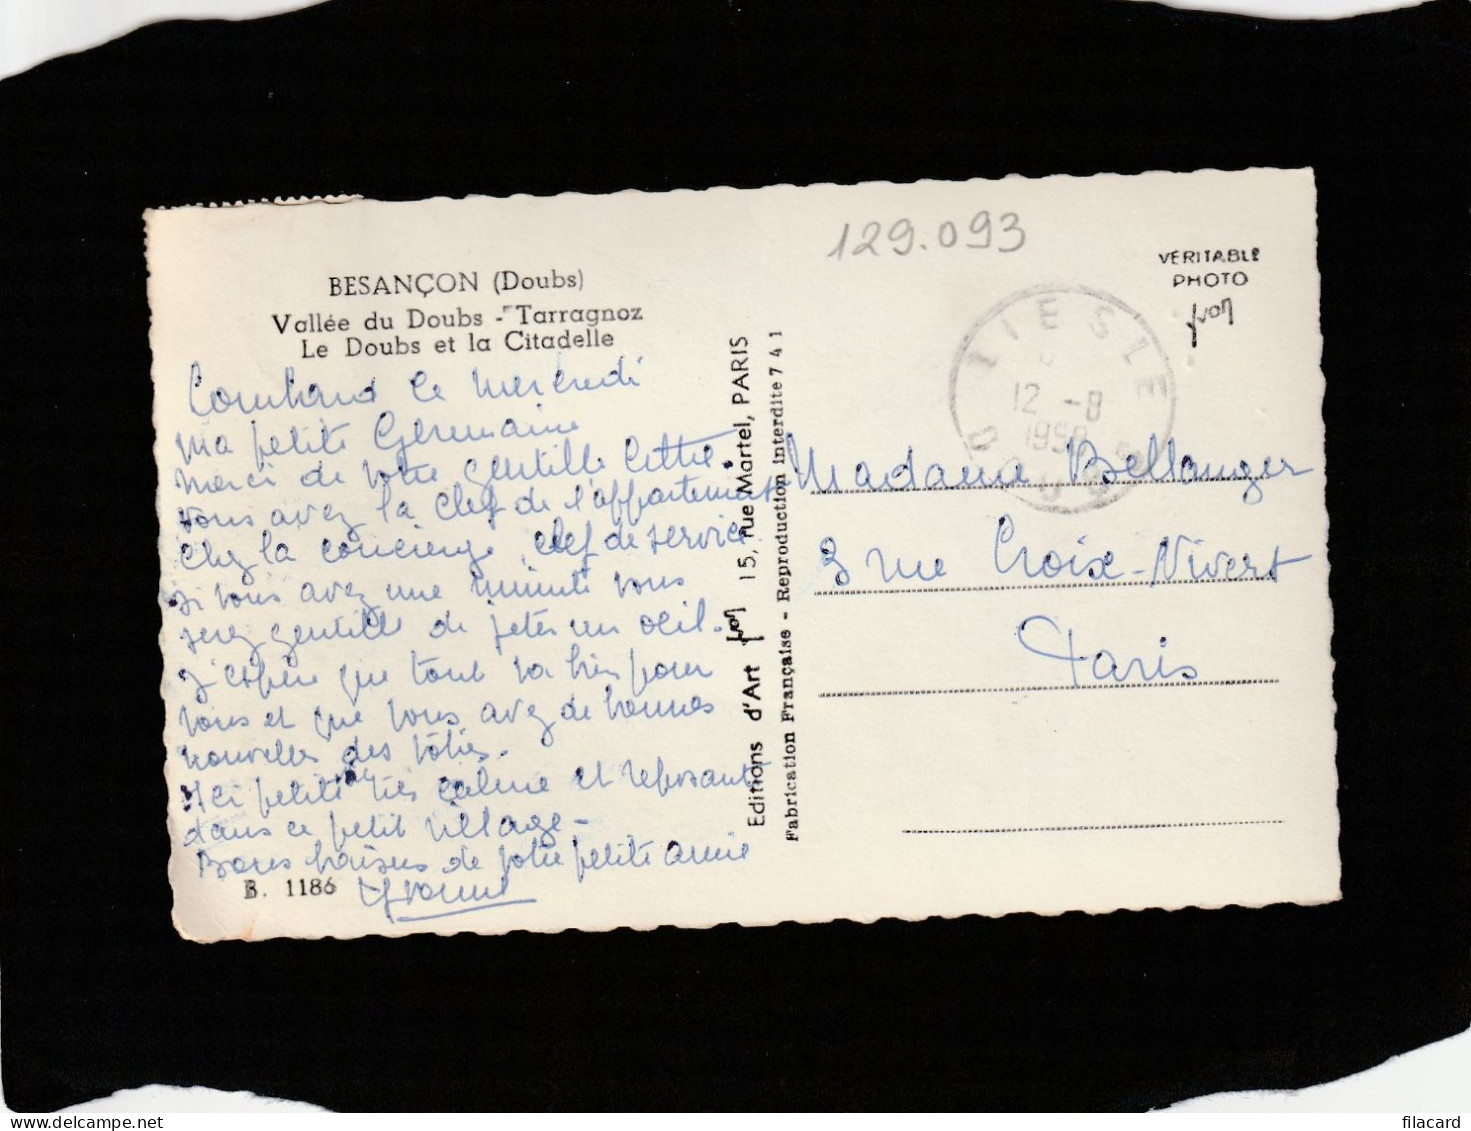 129.093
VERITABLE
PHOTO
yvon
BESANÇON (Doubs)
Vallée du Doubs - Tarragnoz
Le Doubs et la Citadelle
LIESLE
12 -8
DOUBS
le Mercredi
Ma petite Germaine
Merci de votre gentille lettre.
Vous avez la clef de l'appartement
chez la concierge, clef de service.
Si vous avez une minute vous
serez gentille de jeter un œil.
J'espère que tout va bien pour
vous et que vous avez de bonnes
nouvelles des vôtres.
Ici petite très calme et reposante
dans ce petit village -
Bons baisers de votre petite amie
Yvonne
B. 1186
Editions d'Art yvon 15, rue Martel, PARIS
Fabrication Française - Reproduction interdite 741
Madame Bellanger
3 rue Croix-Nivert
Paris
filacard